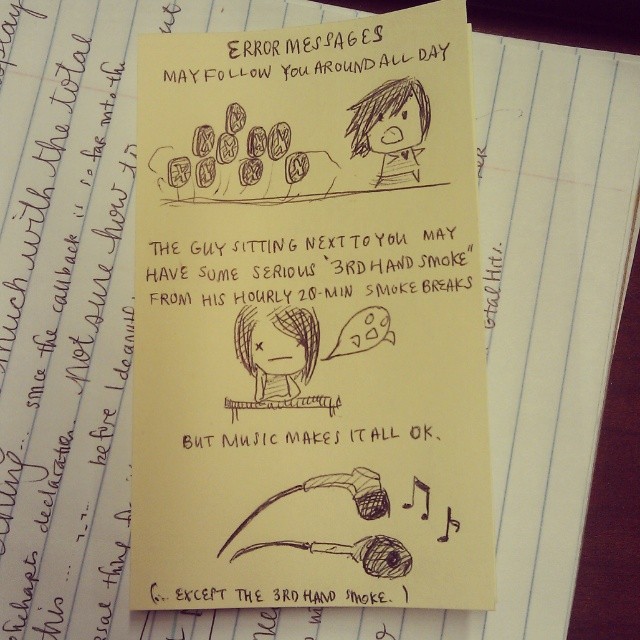 ERROR MESSAGES
MAY FOLLOW YOU AROUND ALL DAY
THE GUY SITTING NEXT TO YOU MAY
HAVE SOME SERIOUS "3RD HAND SMOKE"
FROM HIS HOURLY 20-MIN SMOKE BREAKS
BUT MUSIC MAKES IT ALL OK.
(.. EXCEPT THE 3RD HAND SMOKE. )
much with the total
since the callback is so far into the
declaration. not sure how to
this ... ...
before I